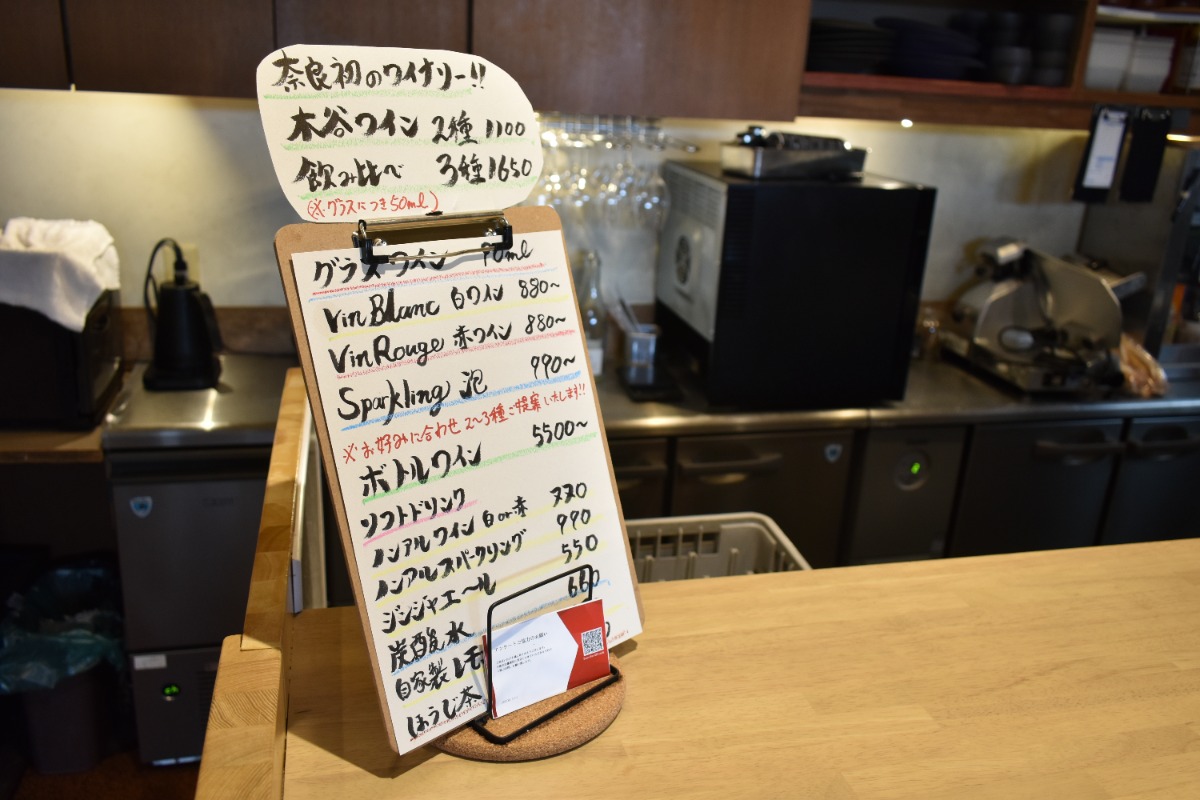 奈良初のワイナリー!!
木谷ワイン 2種 1100
飲み比べ 3種 1650
(※グラスにつき50ml)
グラスワイン 70ml
Vin Blanc 白ワイン 880~
Vin Rouge 赤ワイン 880~
Sparkling 泡 990~
※お好みに合わせ2~3種ご提案いたします!!
ボトルワイン 5500~
ソフトドリンク
ノンアルワイン白or赤 770
ノンアルスパークリング 990
ジンジャエ~ル 550
炭酸水 660
自家製レモ
ほうじ茶